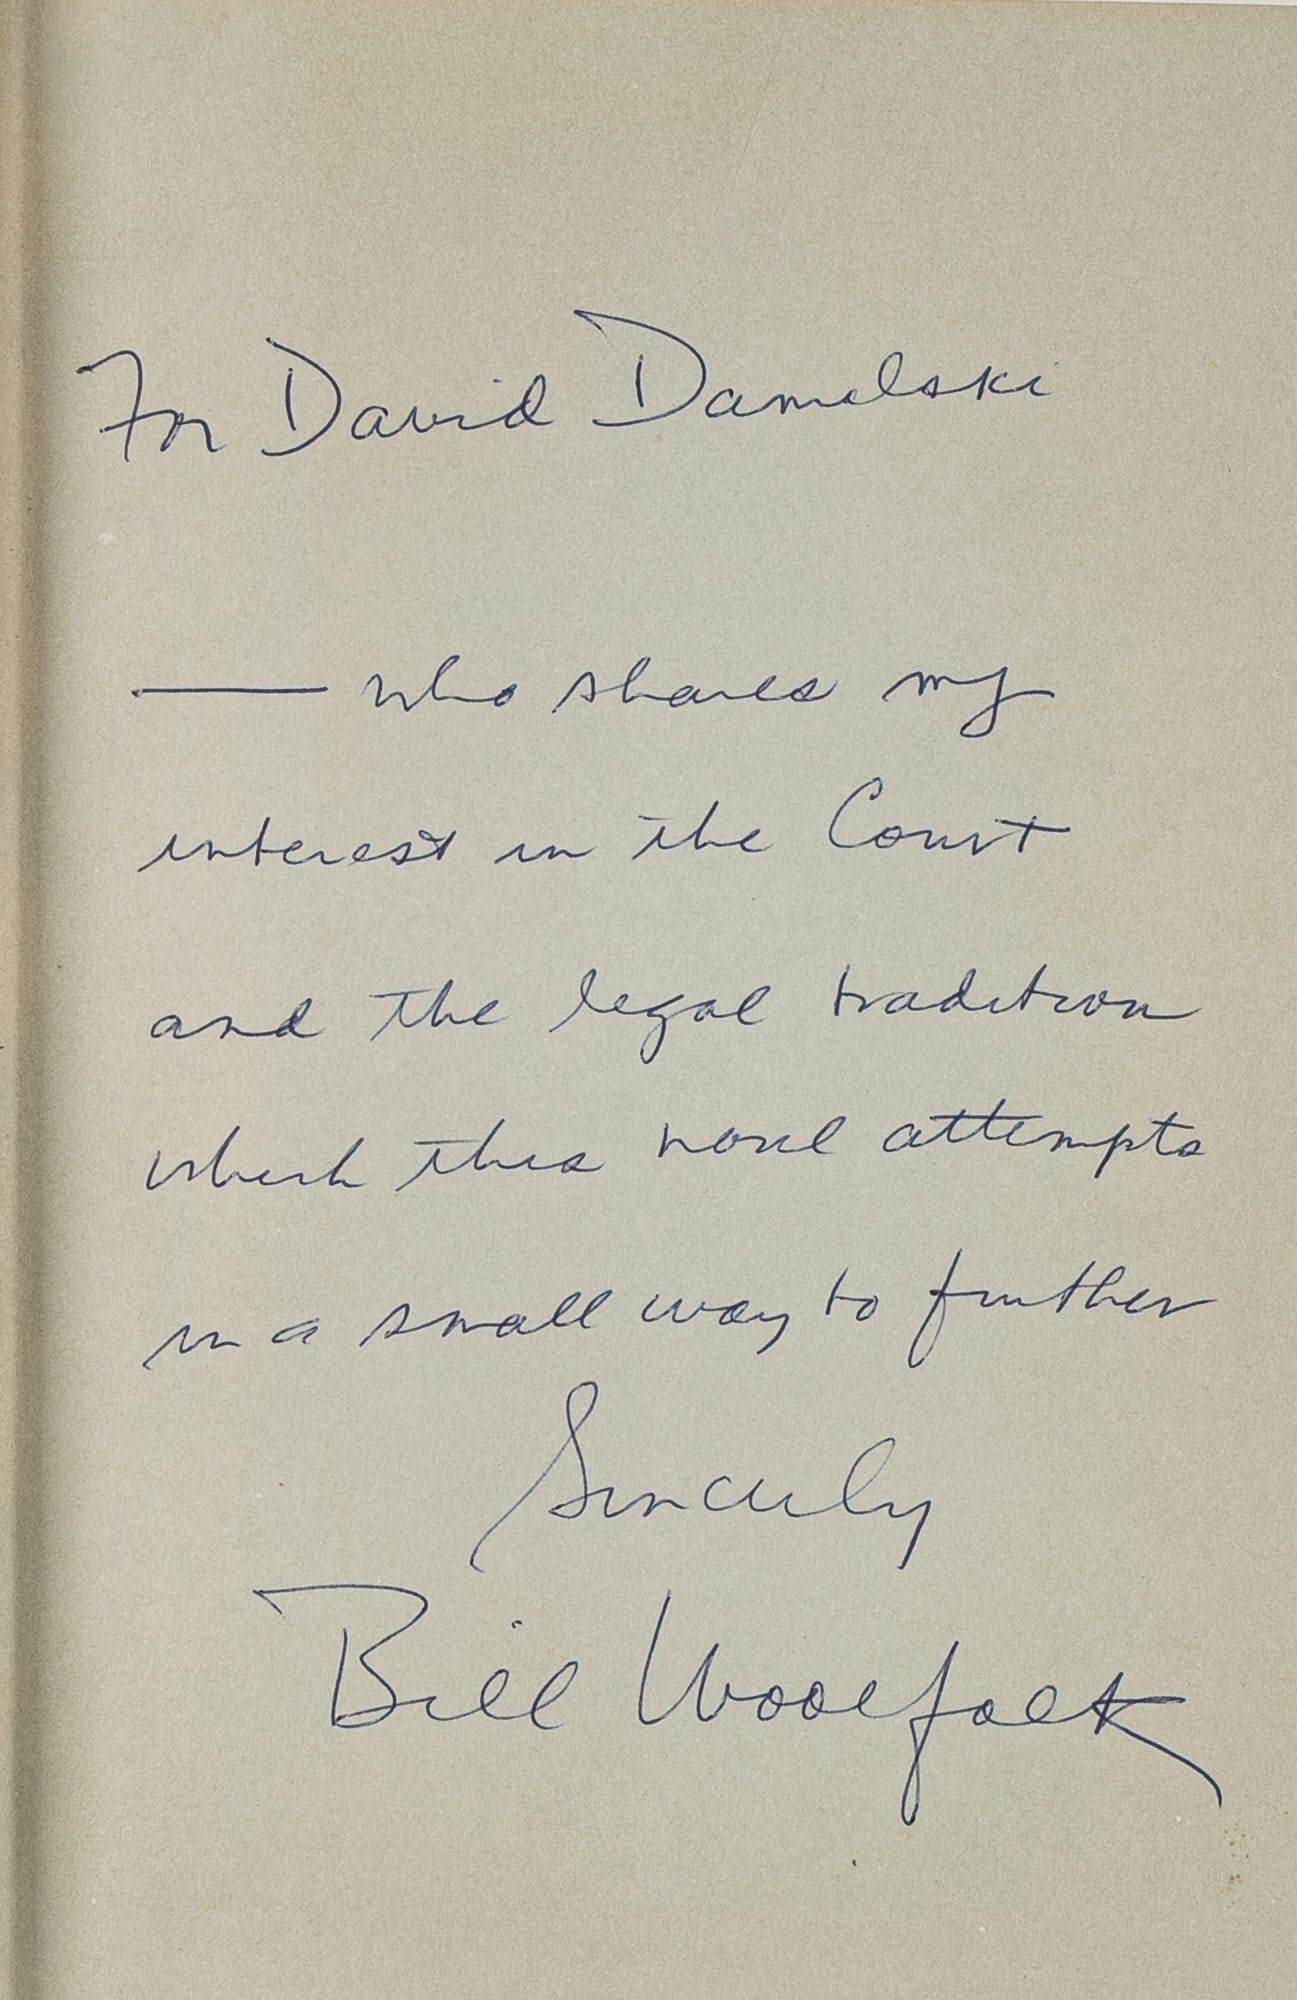 For David Danielski
— who shares my
interest in the Court
and the legal tradition
which this novel attempts
in a small way to further
Sincerely
Bill Woolfolk